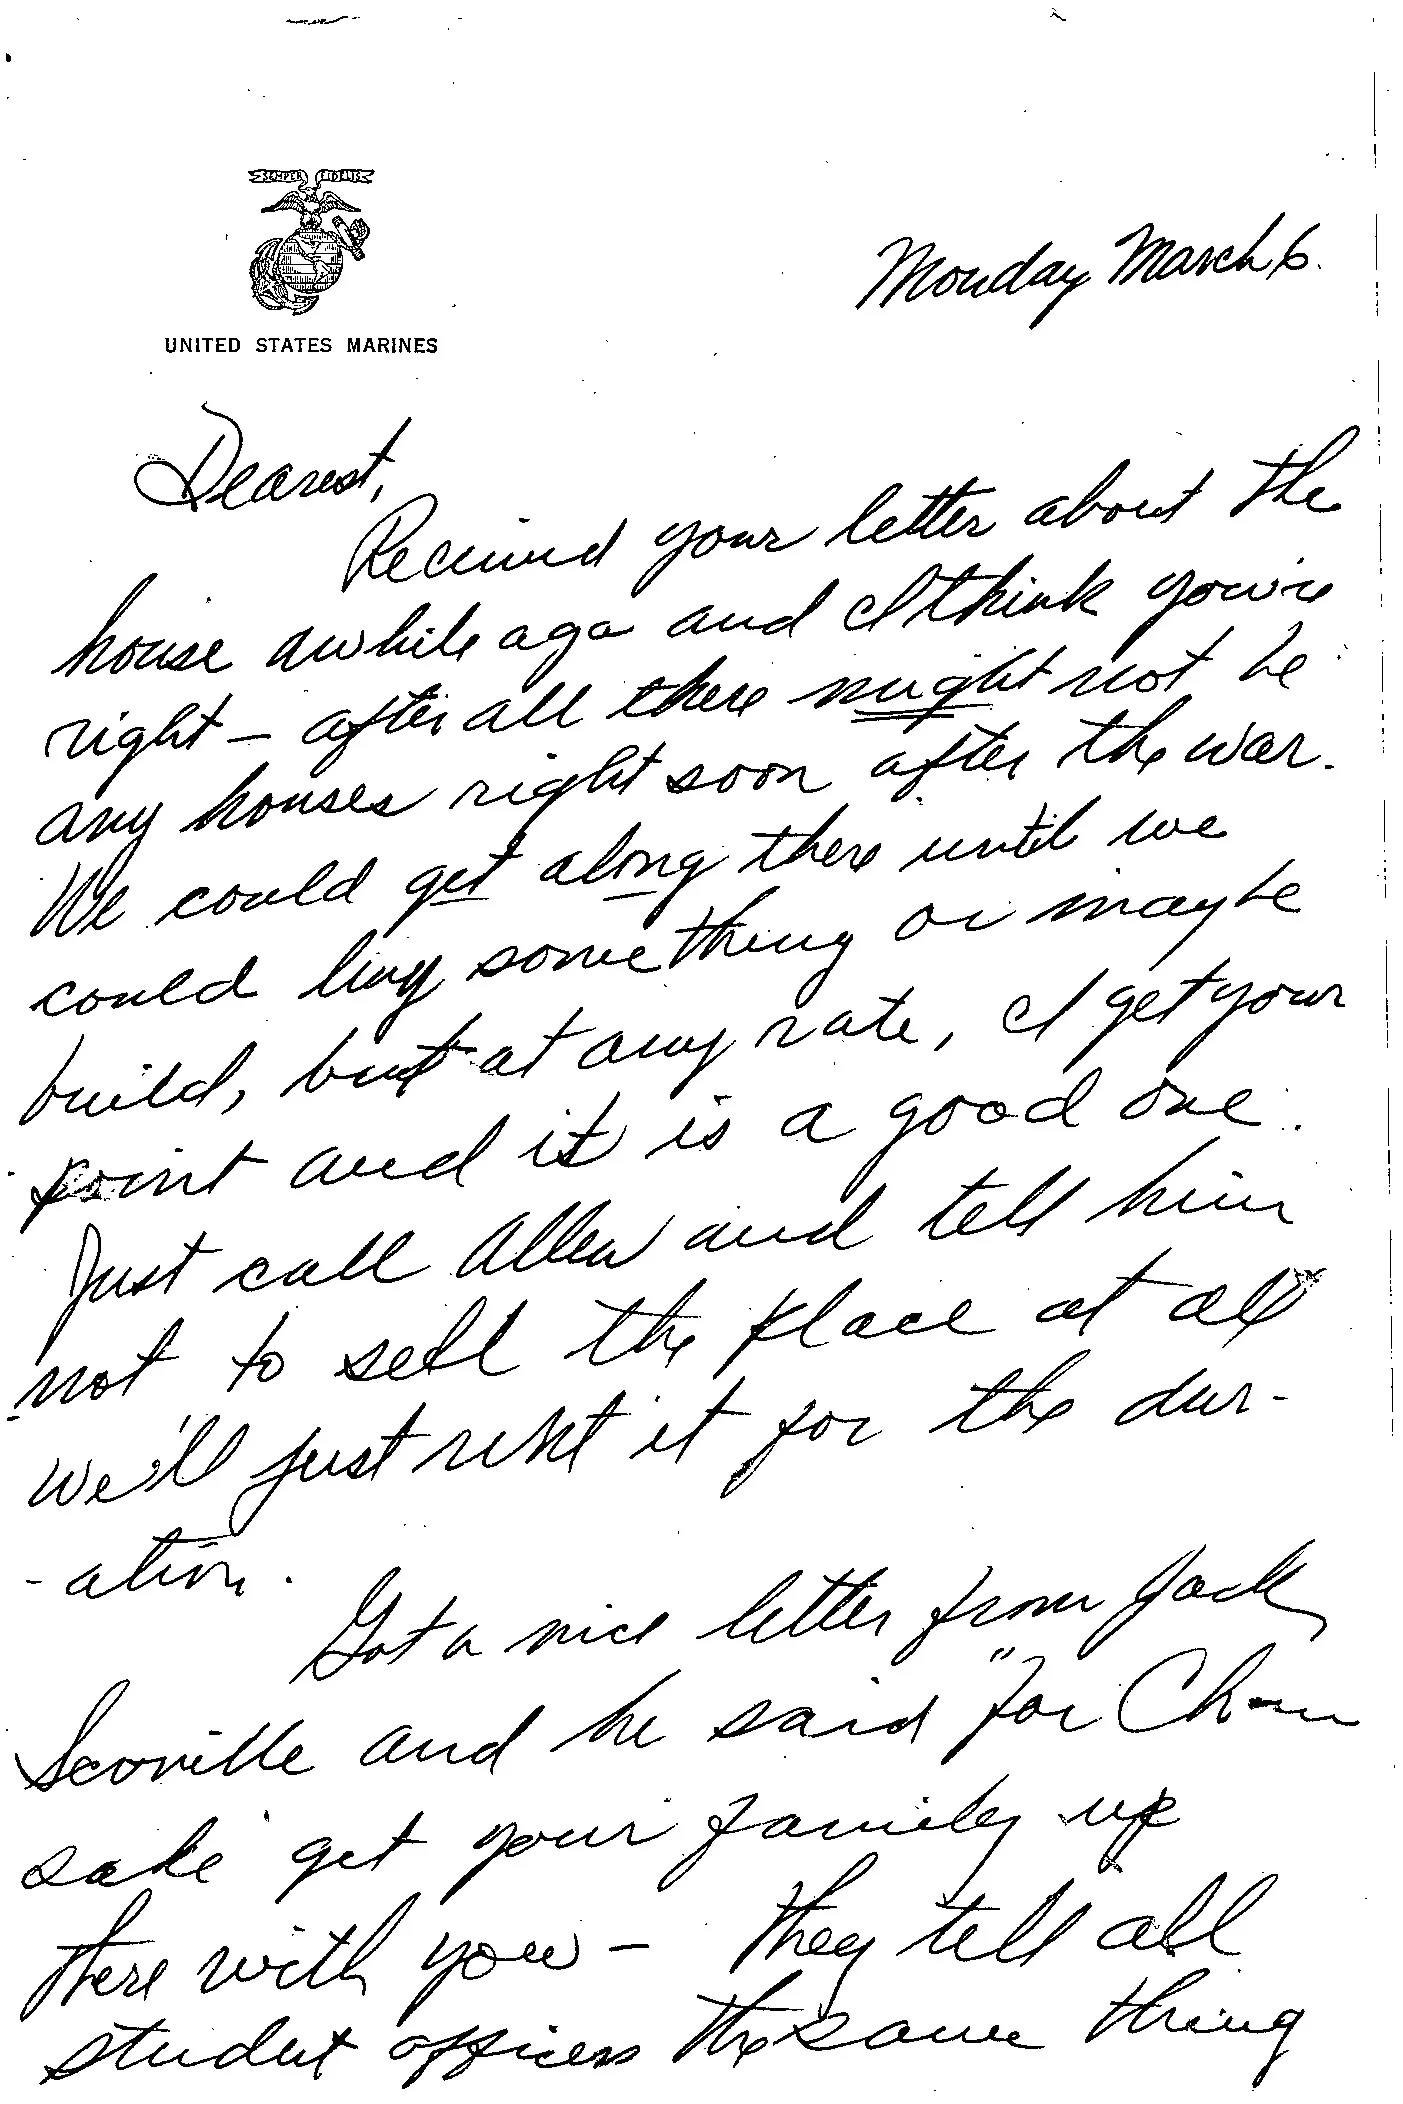 SEMPER FIDELIS
UNITED STATES MARINES
Monday March 6.
Dearest,
Received your letter about the
house awhile ago and I think you're
right – after all there might not be
any houses right soon after the war.
We could get along there until we
could buy something or maybe
build, but at any rate, I get your
point and it is a good one.
Just call Allen and tell him
not to sell the place at all
we'll just rent it for the dur-
-ation.
Got a nice letter from Jack
Scoville and he said "for
sake get your family up
there with you – They tell all
student officers the same thing